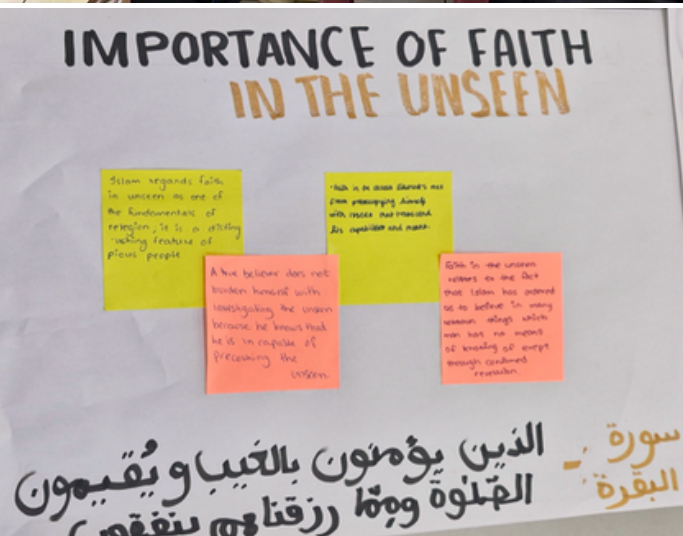 IMPORTANCE OF FAITH
IN THE UNSEEN
Islam regards faith
in unseen as one of
the fundamentals of
relegion, it is a disting
-ushing feature of
pious people
A true believer does not
burden himself with
investigating the unseen
because he knows that
he is incapable of
the
unseen.
from preoccupying himself
with
his capabilities and
Faith in the unseen
to the fact
that Islam has
us to believe in many
unknown things which
man has no means
of knowing of exept
through confirmed
revelation
سورة
البقرة
الذين يؤمنون بالغيب ويُقيمون
الصّلوٰة وممّا رزقناهم ينفقون